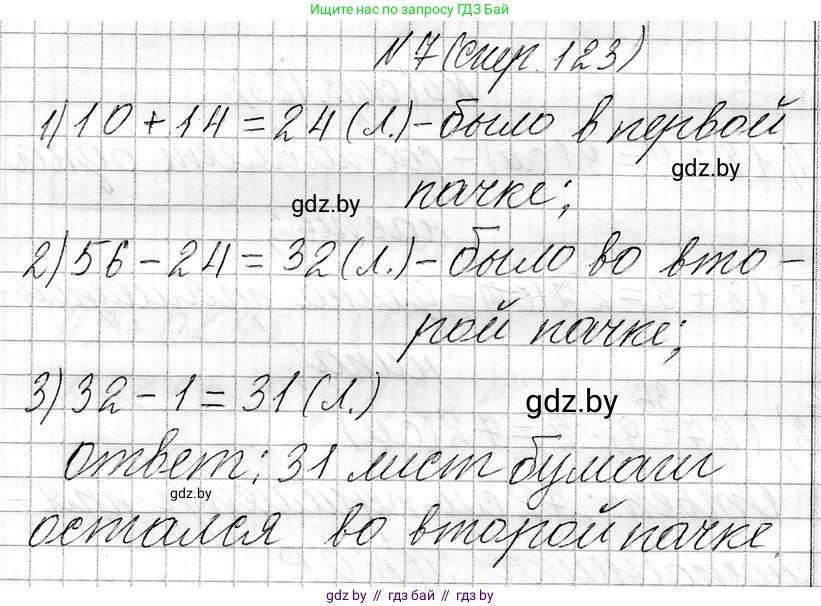 Ищите нас по запросу ГДЗ Бай
№7 (стр. 123)
1) 10 + 14 = 24 (л.) - было в первой
gdz.by
пачке;
gdz.by
2) 56 - 24 = 32 (л.) - было во вто-
рой пачке;
3) 32 - 1 = 31 (л.)
gdz.by
ответ: 31 лист бумаги
gdz.by
остался во второй пачке.
gdz.by // гдз бай // гдз by